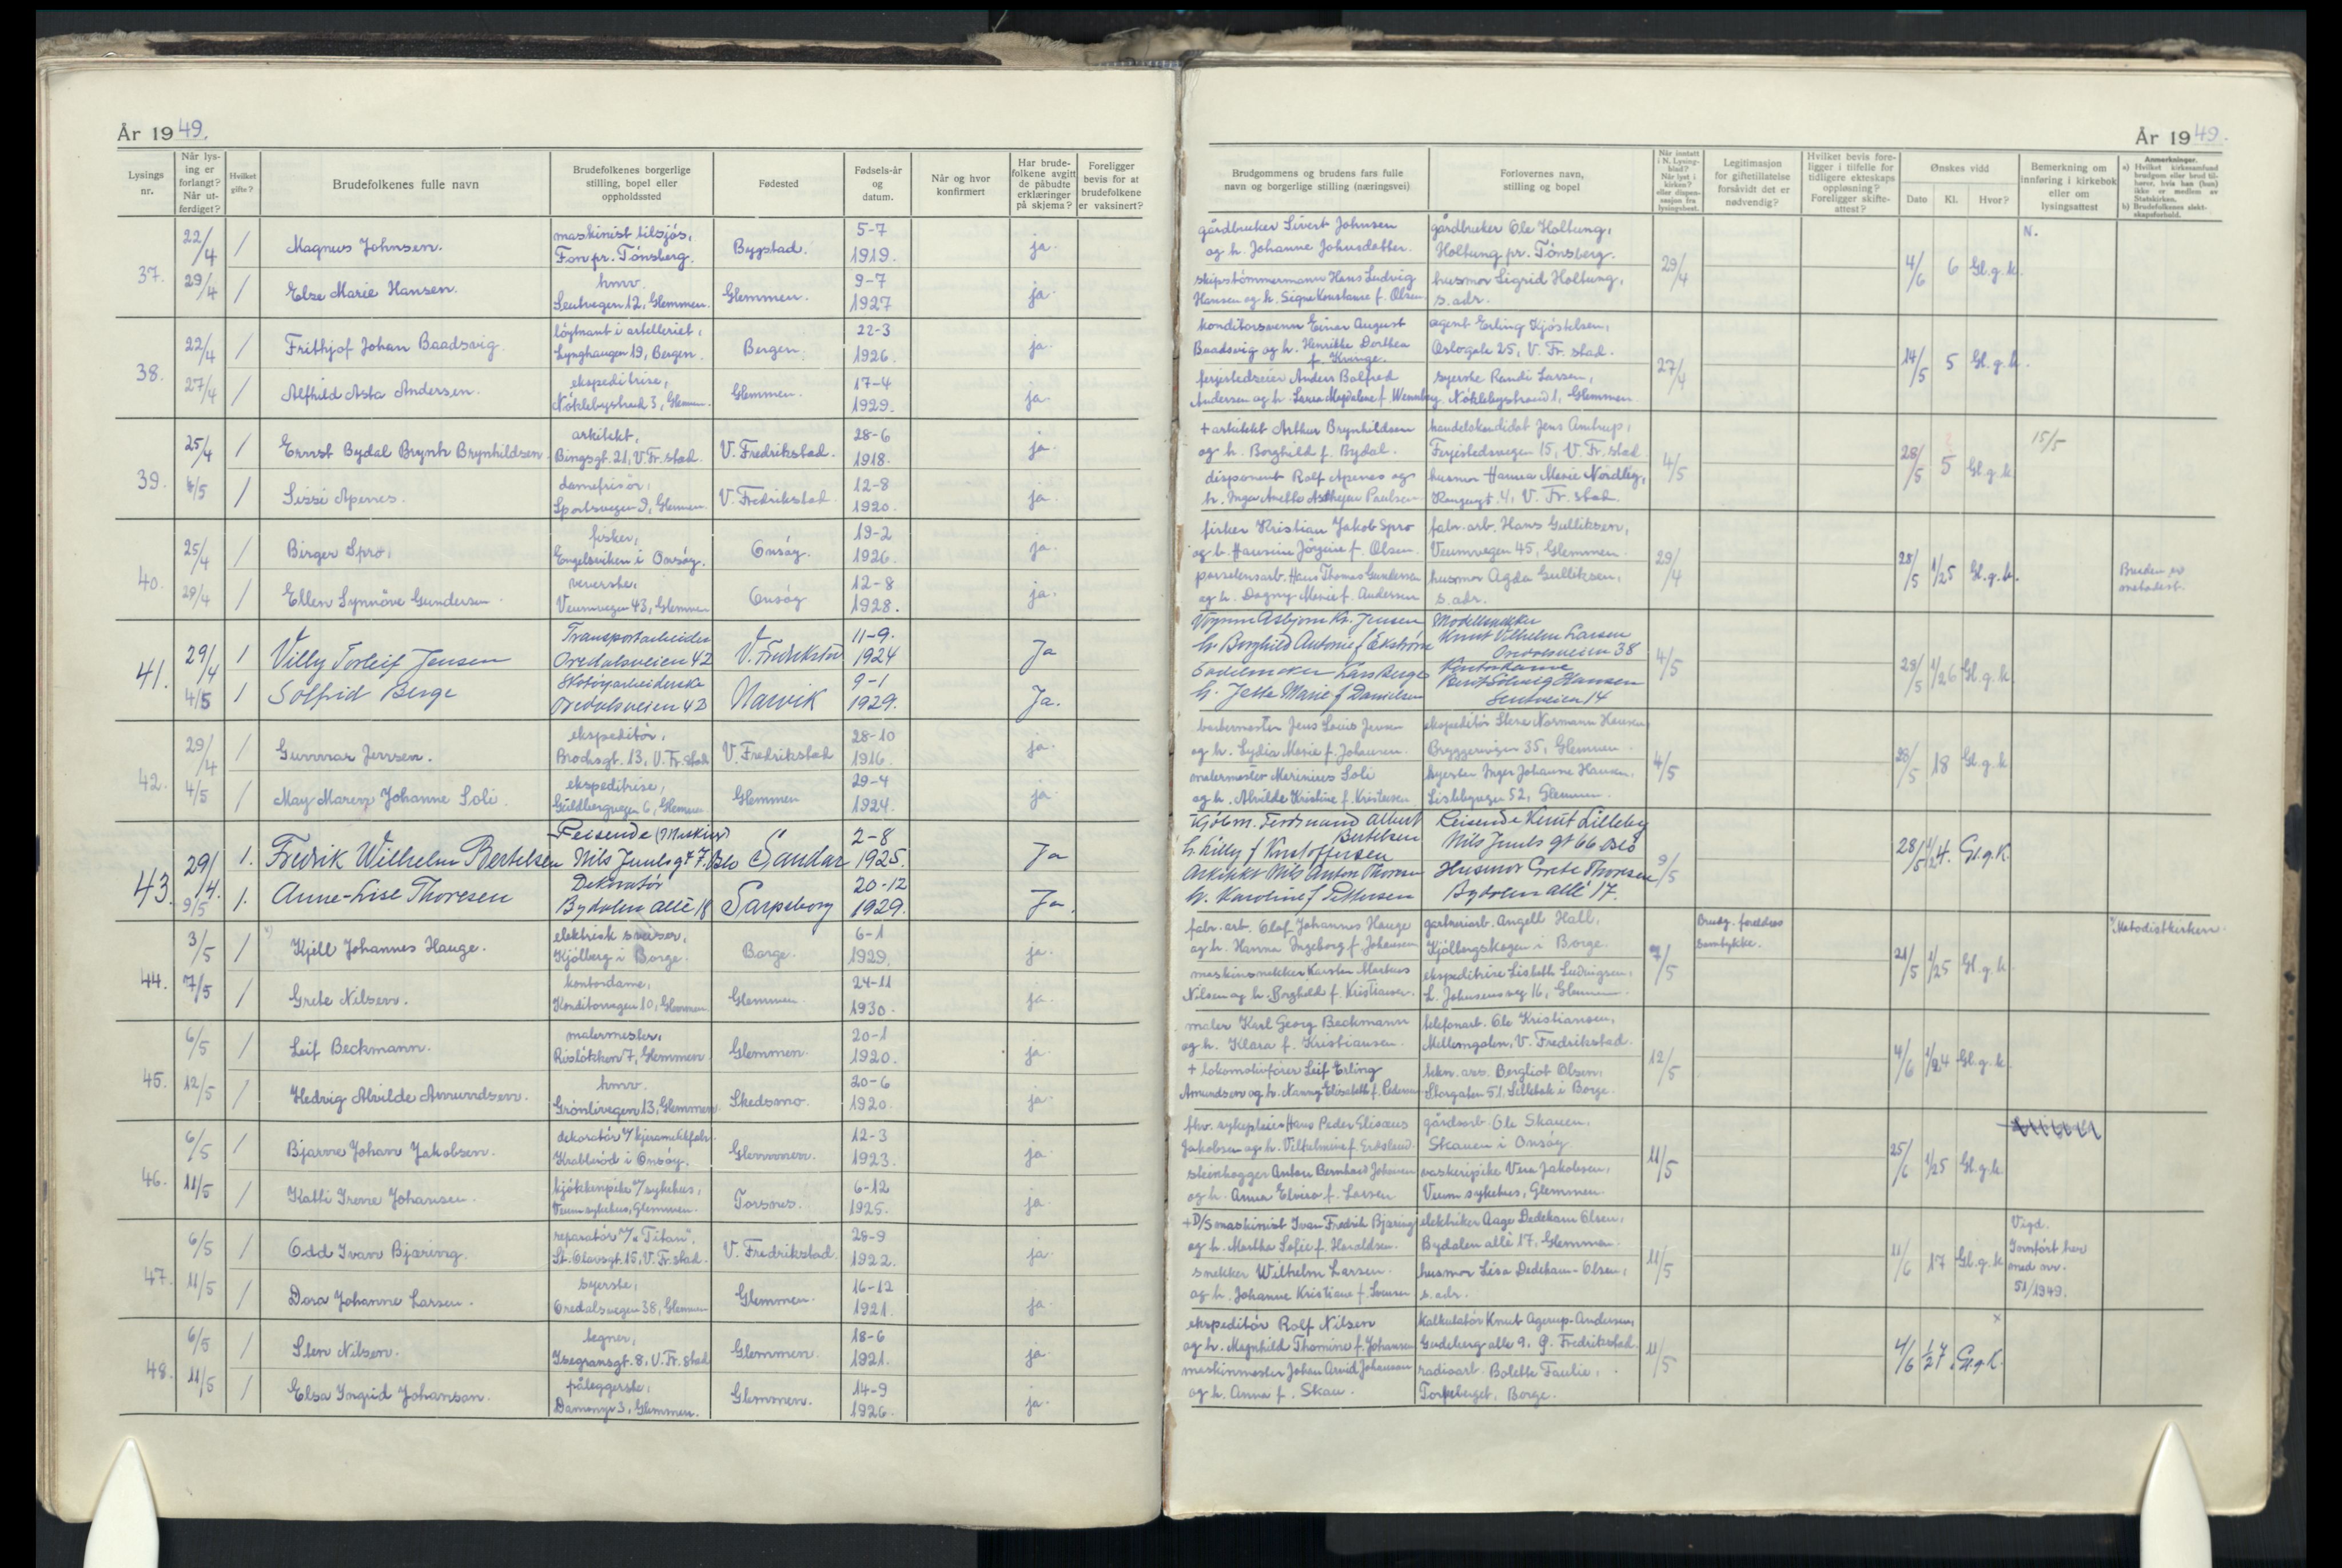 År 1949.
Lysings nr.
Når lys-
ing er
forlangt?
Når ut-
ferdiget?
Hvilket
gifte?
Brudefolkenes fulle navn
Brudefolkenes borgerlige
stilling, bopel eller
oppholdssted
Fødested
Fødsels-år
og
datum.
Når og hvor
konfirmert
Har brude-
folkene avgitt
de påbudte
erklæringer
på skjema?
Foreligger
bevis for at
brudefolkene
er vaksinert?
37. 22/4 29/4
/ Magnus Johnsen. maskinist tilsjøs, Fon pr. Tønsberg. Bygstad. 5-7 1919. ja.
/ Else Marie Hansen. hmv. Leutvegen 12, Glemmen. Glemmen. 9-7 1927 ja.
38. 22/4 27/4
/ Frithjof Johan Baadsvig løytnant i artelleriet, Lynghaugen 19, Bergen. Bergen. 22-3 1926. ja.
/ Alfhild Asta Andersen. ekspeditrise, Nøklebystrand 3, Glemmen. Glemmen. 17-4 1929. ja.
39. 25/4 4/5
/ Ernst Bydal Brynh Brynhildsen. arkitekt, Bingsgt. 21, V. Fr.stad. V. Fredrikstad. 28-6 1918. ja.
/ Sissi Apenes. damefrisør, Sportsvegen 9, Glemmen. V. Fredrikstad. 12-8 1920. ja.
40. 25/4 29/4
/ Birger Spro, fisker, Engelsviken i Onsøy. Onsøy. 19-2 1926. ja.
/ Ellen Synnöve Gundersen. veverske, Veumvegen 43, Glemmen Onsøy 12-8 1928. ja.
41. 29/4 4/5
1 Villy Torleif Jensen Transportarbeider Oredalsveien 42 V. Fredrikstad 11-9. 1924 Ja
1 Solfrid Berge Skotøyarbeiderske Oredalsveien 42 Narvik 9-1 1929. Ja.
42. 29/4 4/5
/ Gunnar Jensen. ekspeditør, Brochsgt. 13, V. Fr.stad V. Fredrikstad 28-10 1916. ja.
/ May Maren Johanne Soli. ekspeditrise, Guldbergvegen 6, Glemmen Glemmen 29-4 1924. ja.
43. 29/4. 9/5
1. Fredrik Wilhelm Bertelsen Reisende Nils Juuls gt 7. Oslo Sandar 2-8 1925. Ja
1. Anne-Lise Thoresen Dekoratør Bydalen allé 18 Sarpsborg 20-12 1929. Ja.
44. 3/5 7/5
/ Kjell Johannes Hauge. elektrisk sveiser, Kjølberg i Borge. Borge. 6-1 1929. ja.
/ Grete Nilsen. kontordame, Konditorvegen 10, Glemmen Glemmen 24-11 1930. ja.
45. 6/5 12/5
/ Leif Beckmann. malermester, Risløkken 7, Glemmen. Glemmen. 20-1 1920. ja.
/ Hedvig Alvilde Amundsen. hmv. Grønlivegen 13, Glemmen. Skedsmo. 20-6 1920. ja.
46. 6/5 11/5
/ Bjarne Johan Jakobsen. dekoratør v/ kjeramikkfabr. Krabberød i Onsøy. Glemmen. 12-3 1923. ja.
/ Katti Irene Johansen. kjøkkenpike v/ sykehus, Veum sykehus, Glemmen. Torsnes. 6-12 1925. ja.
47. 6/5 11/5
/ Odd Ivan Bjæring. reparatør v/ "Titan". St. Olavsgt. 15, V. Fr.stad. V. Fredrikstad. 29-9 1922. ja.
/ Dora Johanne Larsen. syerske, Oredalsvegen 38, Glemmen Glemmen. 16-12 1921. ja.
48. 6/5 11/5
/ Sten Nilsen. tegner, Isegransgt. 8, V. Fr.stad Glemmen. 18-6 1921. ja.
/ Elsa Ingrid Johanson. påleggerske, Damvngr 3, Glemmen. Glemmen. 14-9 1926. ja.
År 1949.
Brudgommens og brudens fars fulle
navn og borgerlige stilling (næringsvei)
Forlovernes navn,
stilling og bopel
Når inntatt
i N. Lysing-
blad?
Når lyst i
kirken?
eller dispen-
sasjon fra
lysningsbest.
Legitimasjon
for giftetillatelse
forsåvidt det er
nødvendig?
Hvilket bevis fore-
ligger i tilfelle for
tidligere ekteskaps
oppløsning?
Foreligger skifte-
attest?
Ønskes vidd
Dato Kl. Hvor?
Bemerkning om
innføring i kirkebok
eller om
lysingsattest
Anmerkninger.
a) Hvilket kirkesamfund
brudgom eller brud til-
hører, hvis han (hun)
ikke er medlem av
Statskirken.
b) Brudefolkenes slekt-
skapsforhold.
gårdbruker Sivert Johnsen og h. Johanne Johnsdatter. gårdbruker Ole Holtung, Holtung pr. Tønsberg. 29/4 4/6 6 Gl. g. k. N.
skipstømmermann Hans Ludvig Hansen og h. Signe Konstanse f. Olsen husmor Sigrid Holtung, s. adr.
konditorsvenn Einar August Baadsvig og h. Henrikke Dorthea f. Kvinge. agent Erling Kjøstelsen, Oslogate 25, V. Fr.stad. 27/4 14/5 5 Gl. g. k.
ferjestedseier Anders Balfred Andersen og h. Laura Magdalene f. Wennberg. syerske Randi Larsen, Nøklebystrand 1, Glemmen
+ arkitekt Arthur Brynhildsen og h. Borghild f. Bydal. handelskandidat Jens Amtrup, Ferjestedsvegen 15, V. Fr.stad 4/5 28/5 5 Gl. g. k. 15/5
disponent Rolf Apenes og h. Inga Paulsen husmor Hanna Marie Nordlig, Kongensgt. 4, V. Fr.stad.
fisker Kristian Jakob Spro og h. Hansine Jørgine f. Olsen. fabr.arb. Hans Gulliksen, Veumvegen 45, Glemmen. 29/4 28/5 1/2 5 Gl. g. k. Bruden er metodist.
porselensarb. Hans Thomas Gundersen og h. Dagny Marie f. Andersen husmor Agda Gulliksen, s. adr.
Asbjørn Kr. Jensen h. Borghild Antonie f Ekstrøm Modellsnekker Knut Vilhelm Larsen Oredalsveien 38 4/5 28/5 1/2 6 Gl. g. k.
Lars Berge h. Marie f Danielsen Kontordame Berit Solveig Hansen Leutveien 14
barbermester Jens Louis Jensen og h. Lydia Marie f. Johansen. ekspeditør Normann Hansen, Bryggeriveien 35, Glemmen. 4/5 28/5 18 Gl. g. k.
malermester Marinius Soli og h. Alvilde Kristine f. Kristensen syerske Inger Johanne Hansen, Lislebyvegen 52, Glemmen.
Kjøbm. Ferdinand Albert Bertelsen h. Lilly f Kristoffersen Reisende Knut Lilleby Nils Juuls gt 66 Oslo 9/5 28/5 1/2 4. Gl. g. K.
Arkitekt Nils Anton Thoresen h. Karoline f Pettersen Husmor Grete Thoresen Bydalen allé 17.
fabr.arb. Olof Johannes Hauge og h. Hanna Ingeborg f. Johansen gartneriarb. Angell Hall, Kjølbergskogen i Borge. 7/5 Brudg. foreldres samtykke. 21/5 1/2 5 Gl. g. k. Metodistkirken.
maskinsnekker Karsten Markus Nilsen og h. Borghild f. Kristiansen. ekspeditrise Lisbeth Ludvigsen, L. Johnsensveg 16, Glemmen.
maler Karl Georg Beckmann og h. Klara f. Kristiansen. telefonarb. Ole Kristiansen, Mellomgaten, V. Fredrikstad. 12/5 4/6 1/2 4 Gl. g. k.
+ lokomotivfører Leif Erling Amundsen og h. Nanny Elisabeth f. Pedersen tekn. ass. Bergliot Olsen, Storgaten 51, Sellebak i Borge.
fhv. sykepleier Hans Peder Elisæus Jakobsen og h. Vilhelmine f. gårdsarb. Ole Skauen, Skauen i Onsøy 11/5 25/6 1/2 5 Gl. g. k.
steinhogger Anton Bernhard Johansen og h. Anna Elvira f. Larsen vaskeripike Vera Jakobsen, Veum sykehus, Glemmen.
+ D/S maskinist Ivan Fredrik Bjæring og h. Martha Sofie f. Haraldsen. elektriker Aage Dedekam Olsen, Bydalen allé 17, Glemmen. 11/5 11/6 17 Gl. g. k. Vigd. Innført her med nr. 51/1949.
snekker Wilhelm Larsen. og h. Johanne Kristiane f. Svensen husmor Lisa Dedekam-Olsen, s. adr.
ekspeditør Rolf Nilsen og h. Magnhild Thomine f. Johansen kalkulatør Knut Agerup-Andersen, Gudeberg alle 9, G. Fredrikstad. 11/5 4/6 1/2 7 Gl. g. K. x
maskinmester Johan Arvid Johanson og h. Anna f. Skau. radioarb. Bolette Faulie, Torpeberget, Borge.